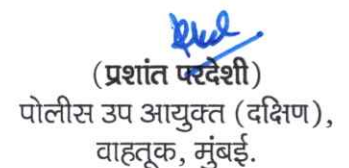 (प्रशांत परदेशी)
पोलीस उप आयुक्त (दक्षिण),
वाहतूक, मुंबई.